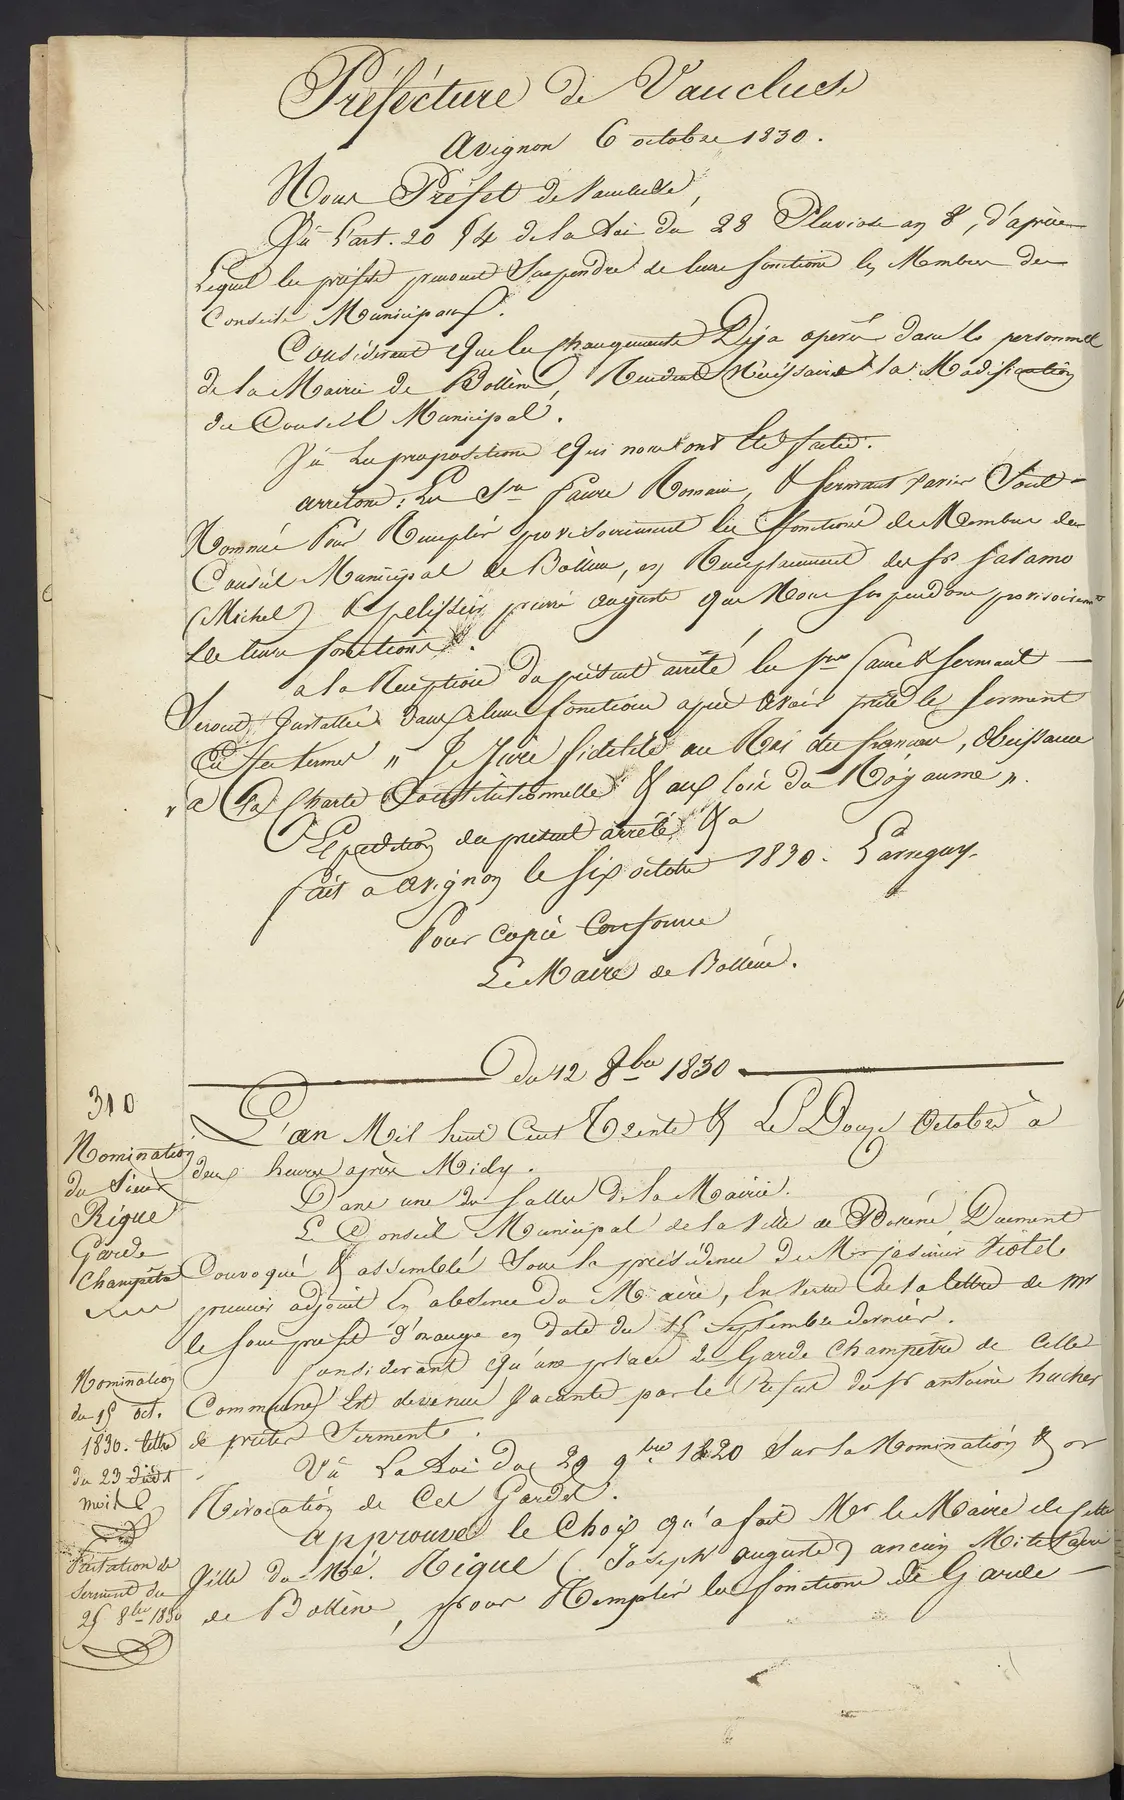 Préfécture de Vaucluse
Avignon 6 octobre 1830.
Nous Préfet de Vaucluse,
Vu L'art. 20 § 4 de la Loi du 28 Pluviose an 8, d'après
Lequel les préfets peuvent Suspendre de leurs fonctions les Membres des
Conseils Municipaux.
Considérant que les changements Déja operés dans le personnel
de la Mairie de Bollène, Rendent Nécéssaire la Modification
du Conseil Municipal.
Vu Les propositions qui nous ont été faites.
arretons: Les Srs faure Romain, & fermaut xavier Sont
Nommés Pour Remplir provisoirement les fonctions de Membres du
Conseil Municipal de Bollène, en Remplacement des srs
(Michel) & pelissier pierre auguste que Nous suspendons provisoiremt
de leurs fonctions.
à la Reception du présent arrêté les srs faure & fermaut
Seront Installés dans leurs fonctions après avoir prêté le serment
en ces termes „ Je Jure fidelité au Roi des francais, Obeissance
a la Charte Constitutionnelle & aux lois du Royaume „.
Expedition du présent arrêté & a
fait a avignon le six octobre 1830. Larreguy.
Pour copie Conforme
Le Maire de Bollène.
Du 12 8bre 1830
310
Nomination
du Sieur
Rique
Garde
Champêtre
L'an Mil huit Cent Trente & Le Douze Octobre à
deux heures après Midy.
Dans une des salles de la Mairie.
Le Conseil Municipal de la Ville de Bollène Dument
Convoqué & assemblé Sous la présidence de Mr
premier adjoint En absence du Maire, En Vertu de la lettre de mr
le sous prefet d'orange en date du 15 Septembre dernier.
Considerant qu'une place de Garde Champêtre de Cette
Commune Est devenue Vacante par le Refus du sr antoine
de prêter Serment.
Nomination
du 15 oct.
1830. lettre
du 23 dudt
mois
Vu La Loi du 29 9bre 1820 Sur la Nomination & or
Révocation de Ces Gardes.
approuve le Choix qu'a fait Mr le Maire de Cette
Ville du Né. Rique (Joseph auguste) ancien Militaire
de Bollène, pour Remplir les fonctions de Garde
Prêtation de
Serment du
25 8bre 1830